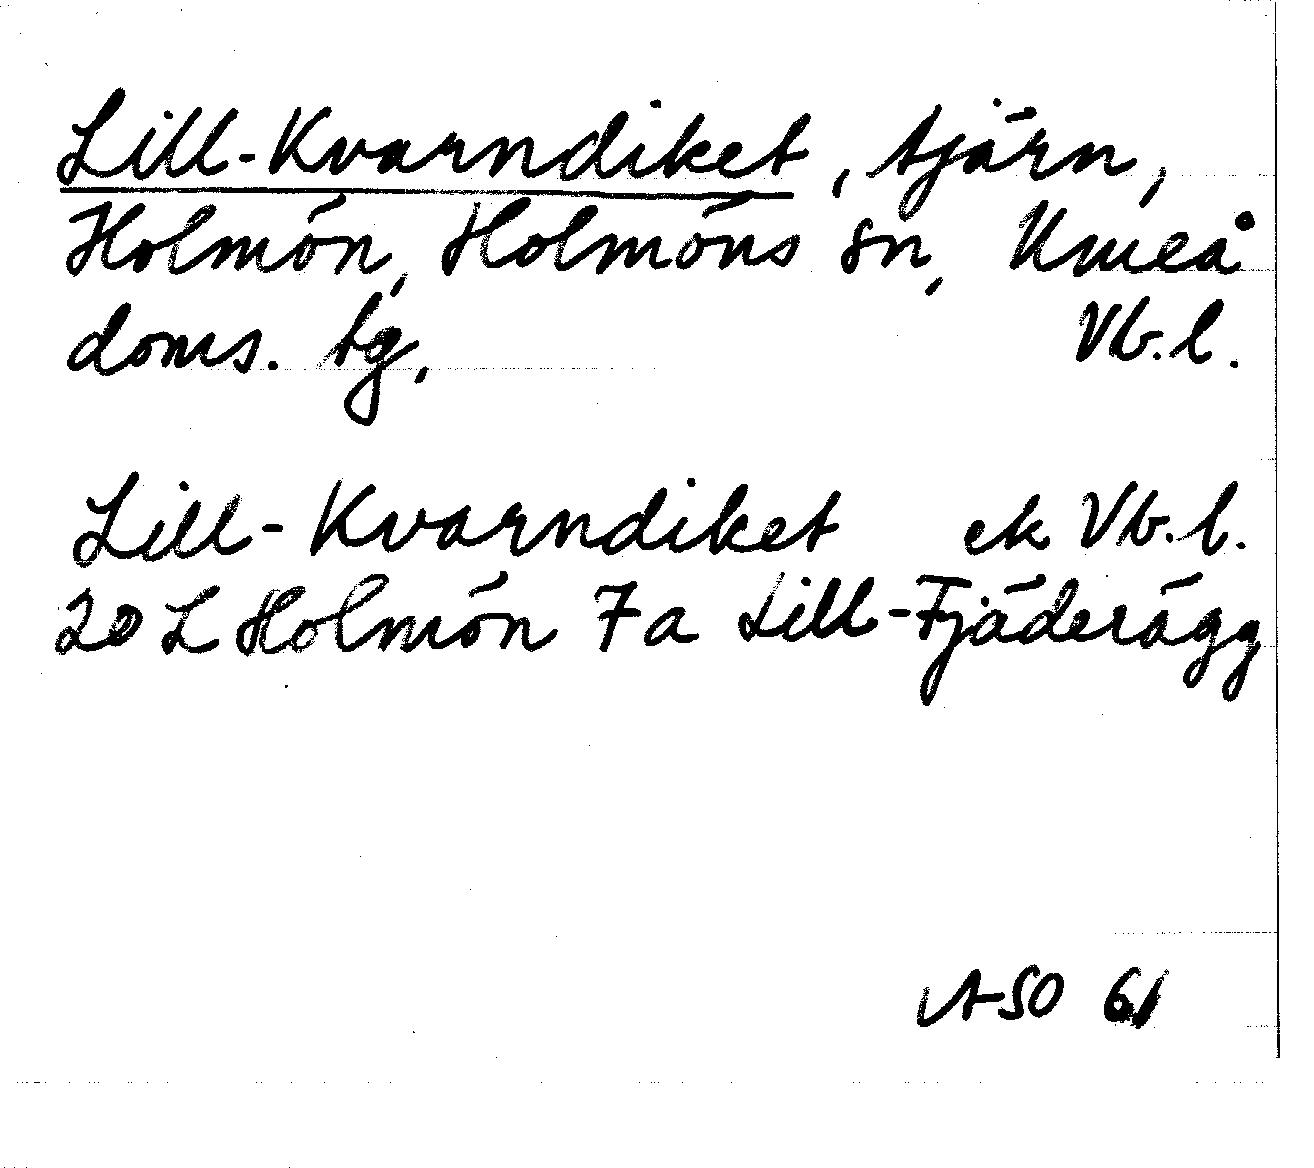 Lill-Kvarndiket, tjärn,
Holmön, Holmöns sn, Umeå
doms. tg, Vb.l.
Lill-Kvarndiket ek Vb.l.
20 L Holmön 7a Lill-Fjäderägg
A-SO 61